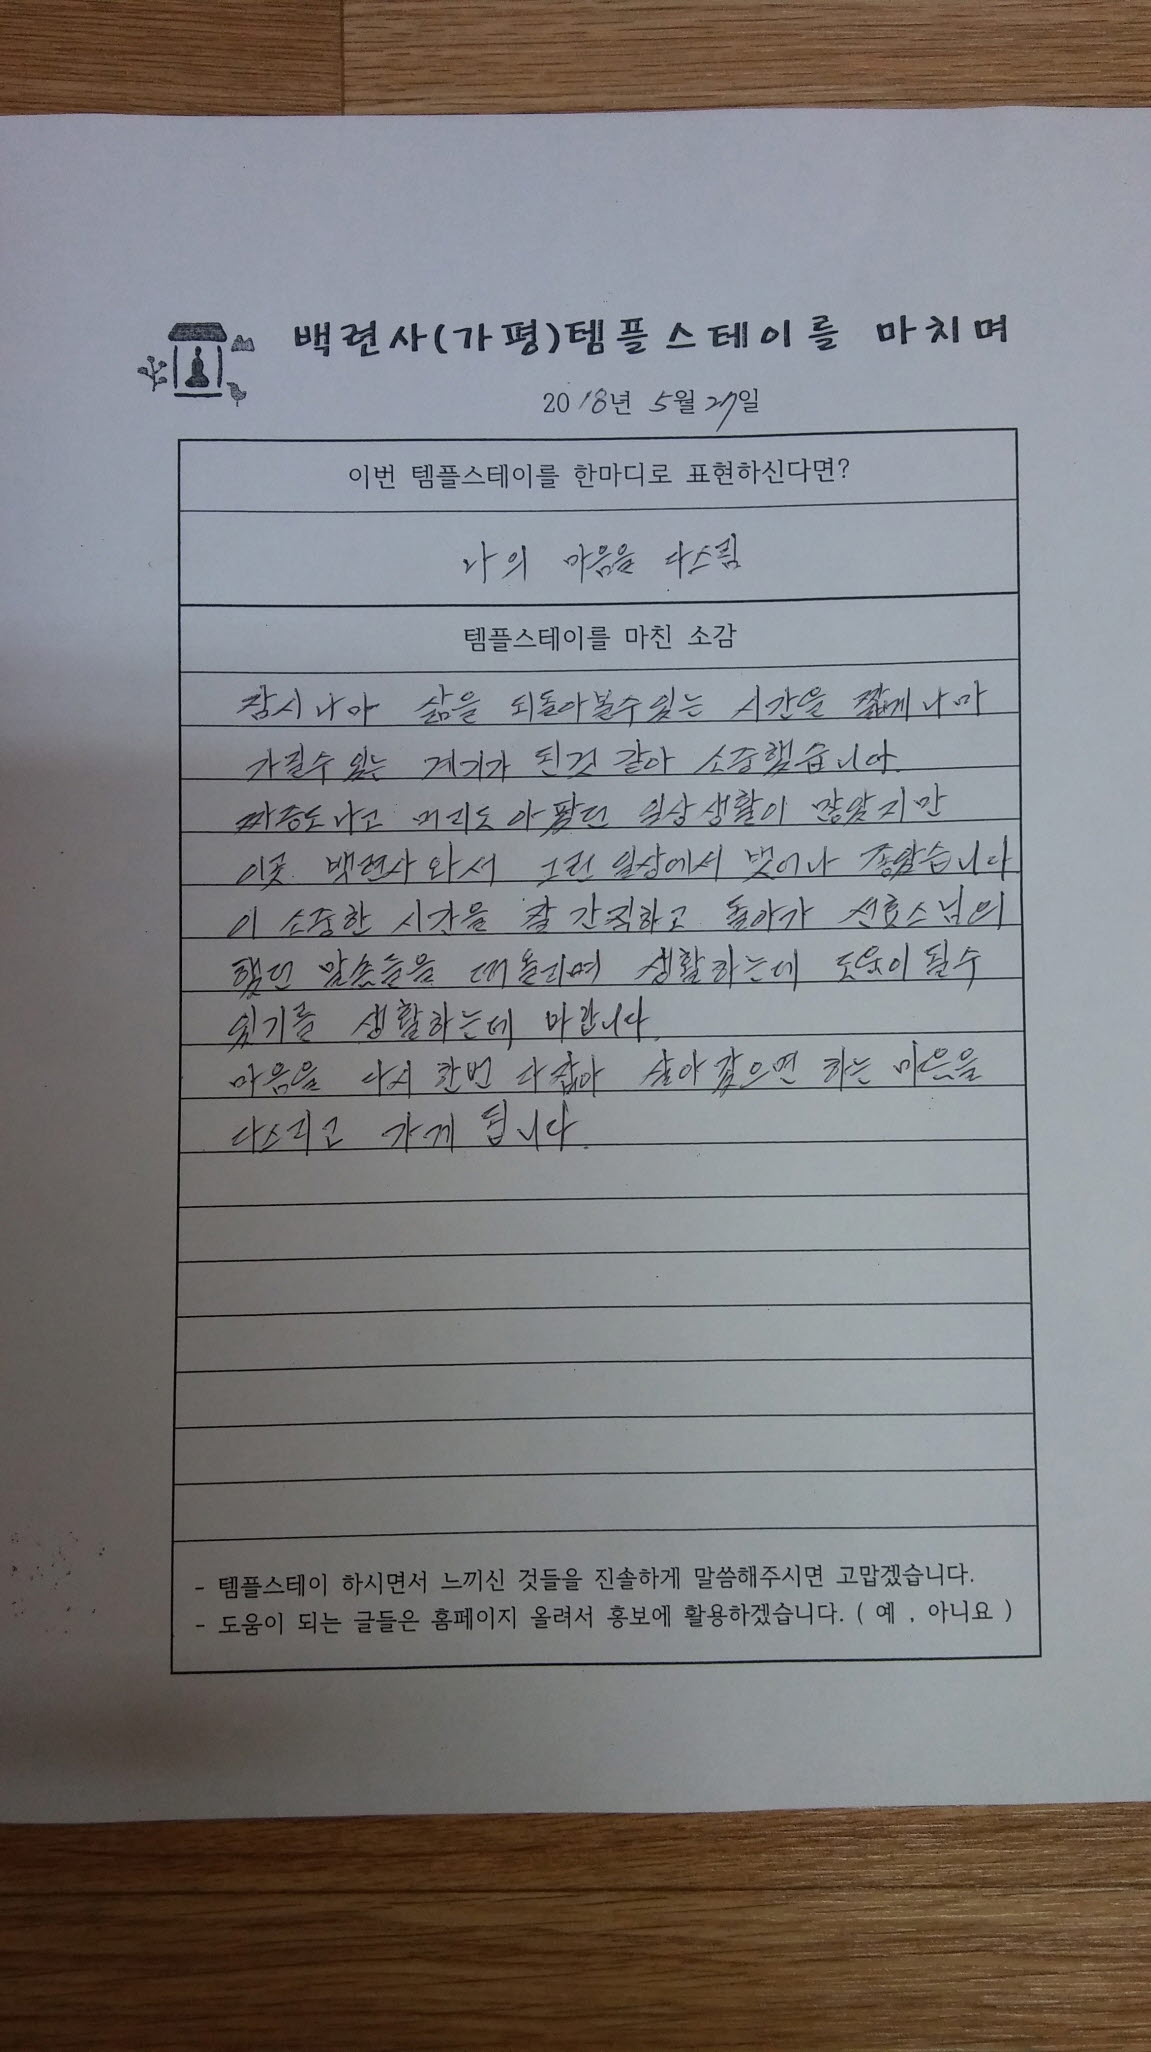 백련사(가평)템플스테이를 마치며
2018년 5월 27일
이번 템플스테이를 한마디로 표현하신다면?
나의 마음을 다스림
템플스테이를 마친 소감
잠시나마 삶을 되돌아볼수있는 시간을 짧게나마
가질수 있는 계기가 된것 같아 소중했습니다.
짜증도나고 머리도 아팠던 일상생활이 많았지만
이곳 백련사 와서 그런 일상에서 벗어나 좋았습니다
이 소중한 시간을 잘 간직하고 돌아가 선효스님의
했던 말씀들을 떠올리며 생활하는데 도움이 될수
있기를 생활하는데 바랍니다.
마음을 다시 한번 다잡아 살아갔으면 하는 마음을
다스리고 가게 됩니다.
- 템플스테이 하시면서 느끼신 것들을 진솔하게 말씀해주시면 고맙겠습니다.
- 도움이 되는 글들은 홈페이지 올려서 홍보에 활용하겠습니다. ( 예 , 아니요 )